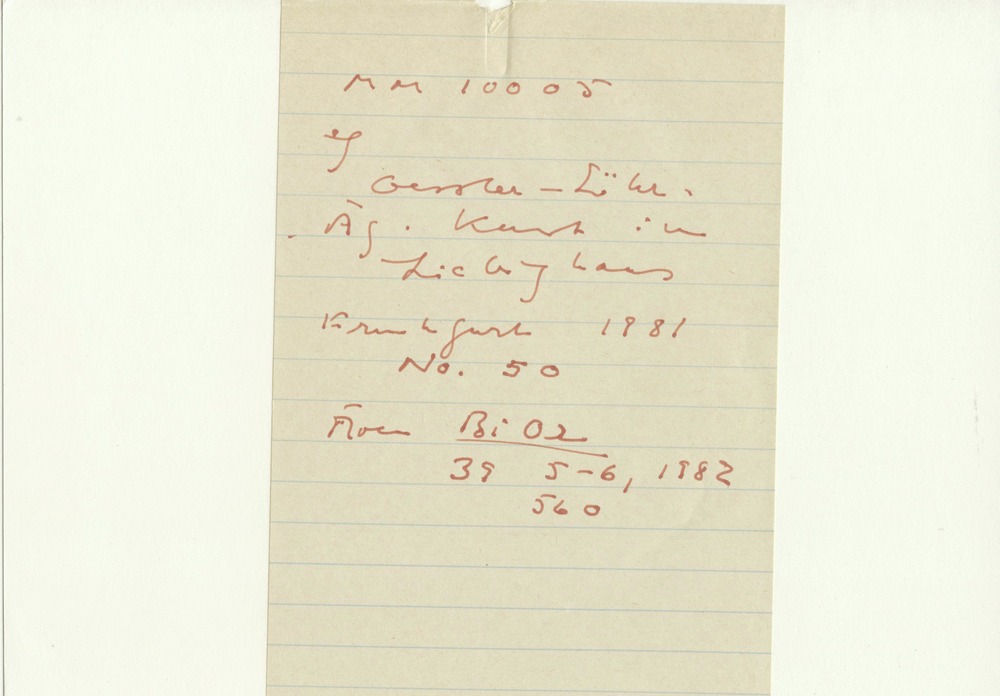 MM 10005
cf
Gessler-Löhr.
Äg. Kunst im
Liebieghaus
Frankfurt 1981
No. 50
From BiOr
39 5-6, 1982
560